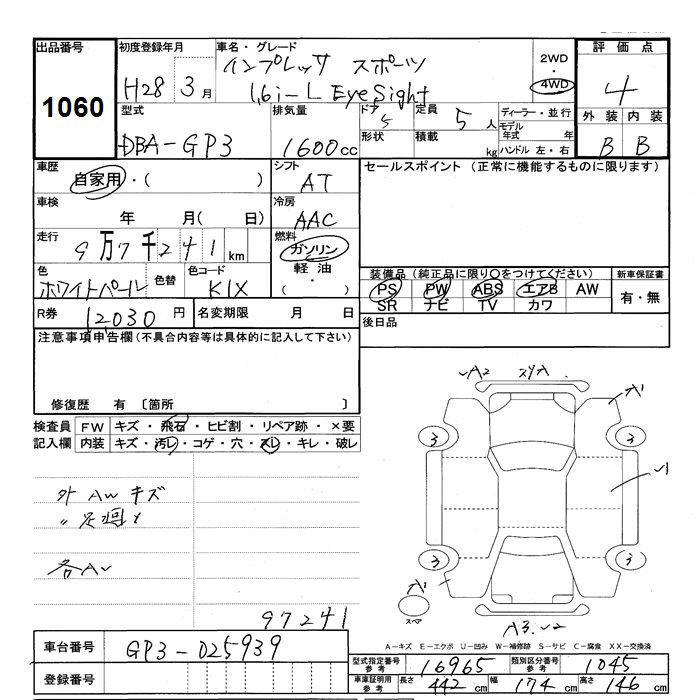 出品番号
1060
初度登録年月
H28 3月
車名・グレード
インプレッサ スポーツ
1.6i-L EyeSight
2WD
4WD
評価点
4
外装 内装
B B
型式
DBA-GP3
排気量
1600cc
ドア 5
形状
定員 5人
積載 kg
ディーラー・並行
モデル年式 年
ハンドル 左・右
車歴
自家用・( )
シフト
AT
セールスポイント (正常に機能するものに限ります)
車検
年 月( 日)
冷房
AAC
走行
9万7千241km
燃料
ガソリン
軽油
( ・ )
色
ホワイトパール
色替
色コード
K1X
装備品 (純正品に限り○をつけてください)
新車保証書
PS PW ABS エアB AW
有・無
SR ナビ TV カワ
R券 12,030円
名変期限 月 日
後日品
注意事項申告欄 (不具合内容等は具体的に記入して下さい)
修復歴 有 〔箇所 〕
検査員 FW キズ・飛石・ヒビ割・リペア跡・×要
記入欄 内装 キズ・汚レ・コゲ・穴・スレ・キレ・破レ
外 AW キズ
〃 足廻り
97241
A2
A
3 3
3 3
スペア
A-キズ E-エクボ U-凹み W-補修跡 S-サビ C-腐食 XX-交換済
車台番号
GP3-D25939
登録番号
型式指定番号
参考
16965
類別区分番号
参考
1045
車庫証明用
参考
長さ 442cm 幅 174cm 高さ 146cm